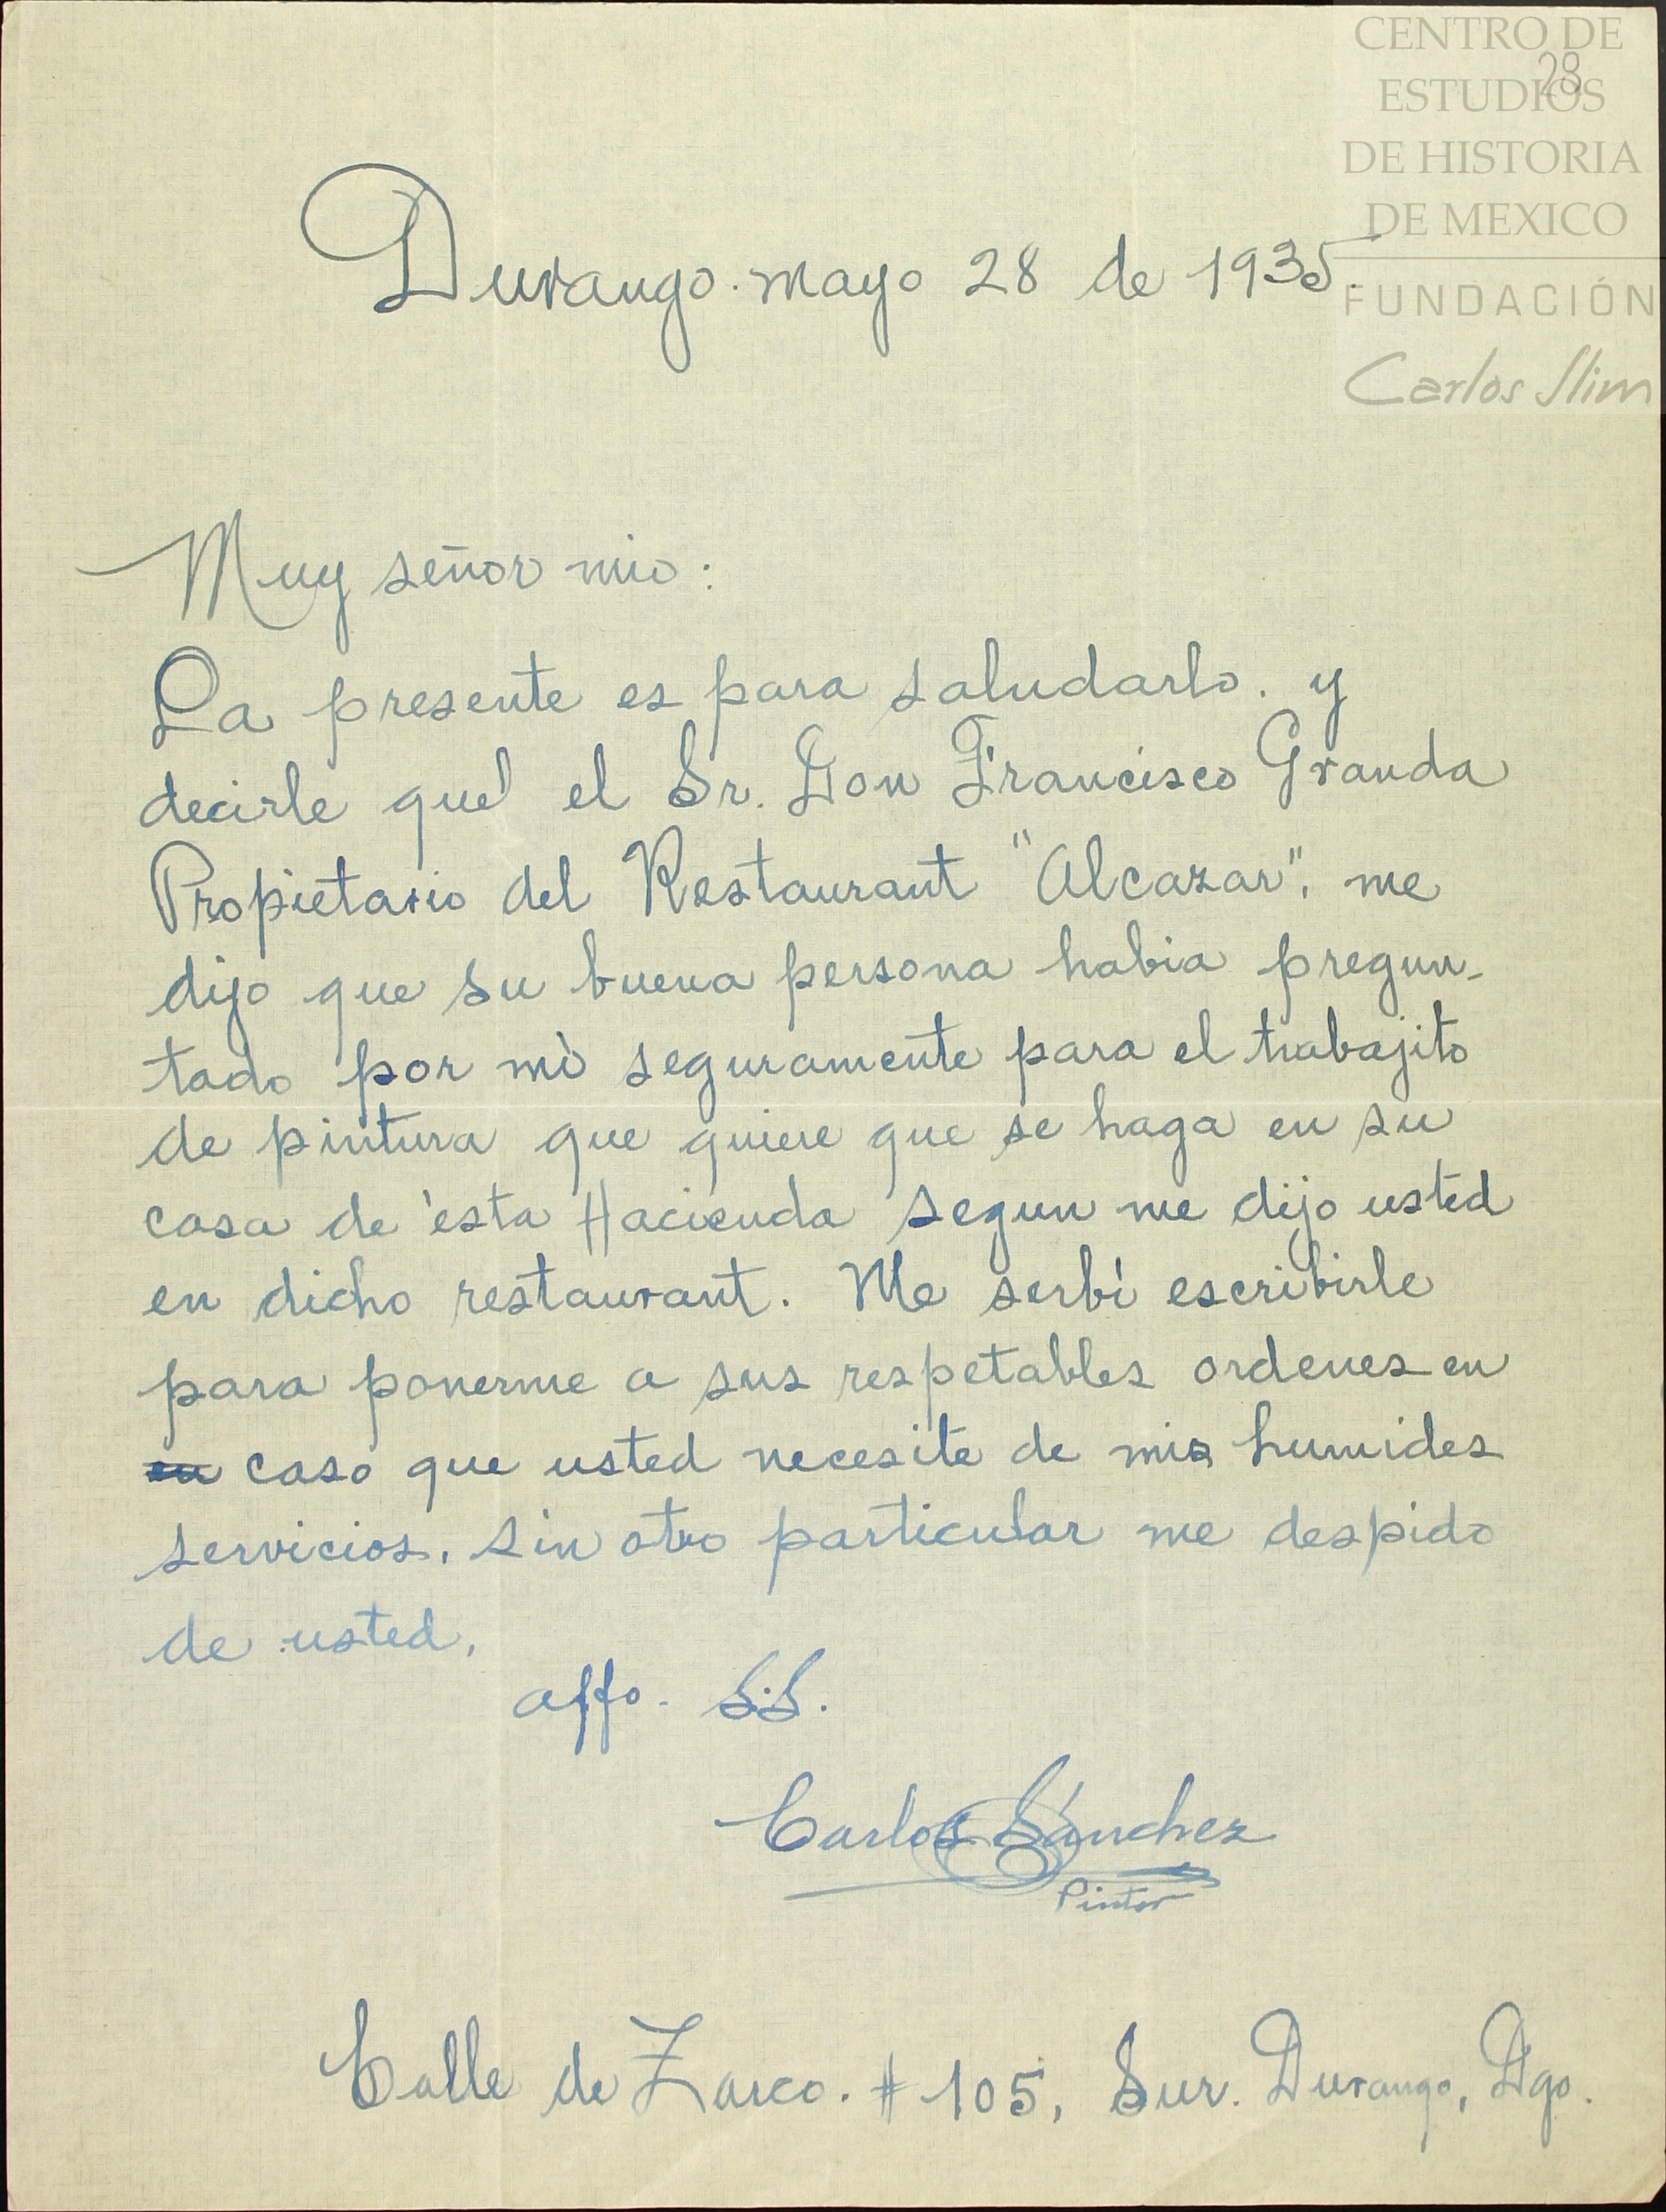 CENTRO DE
ESTUDIOS
DE HISTORIA
DE MEXICO
FUNDACIÓN
Carlos Slim
28
Durango. mayo 28 de 1935.
Muy señor mio:
La presente es para saludarlo. y
decirle que el Sr. Don Francisco Granda
Propietario del Restaurant "Alcazar", me
dijo que su buena persona habia pregun-
tado por mì seguramente para el trabajito
de pintura que quiere que se haga en su
casa de ésta Hacienda segun me dijo usted
en dicho restaurant. Me serbì escribirle
para ponerme a sus respetables ordenes en
en caso que usted necesite de mis humides
servicios. sin otro particular me despido
de usted.
affo. S.S.
Carlos Sánchez
Pintor
Calle de Zarco. # 105, Sur. Durango, Dgo.